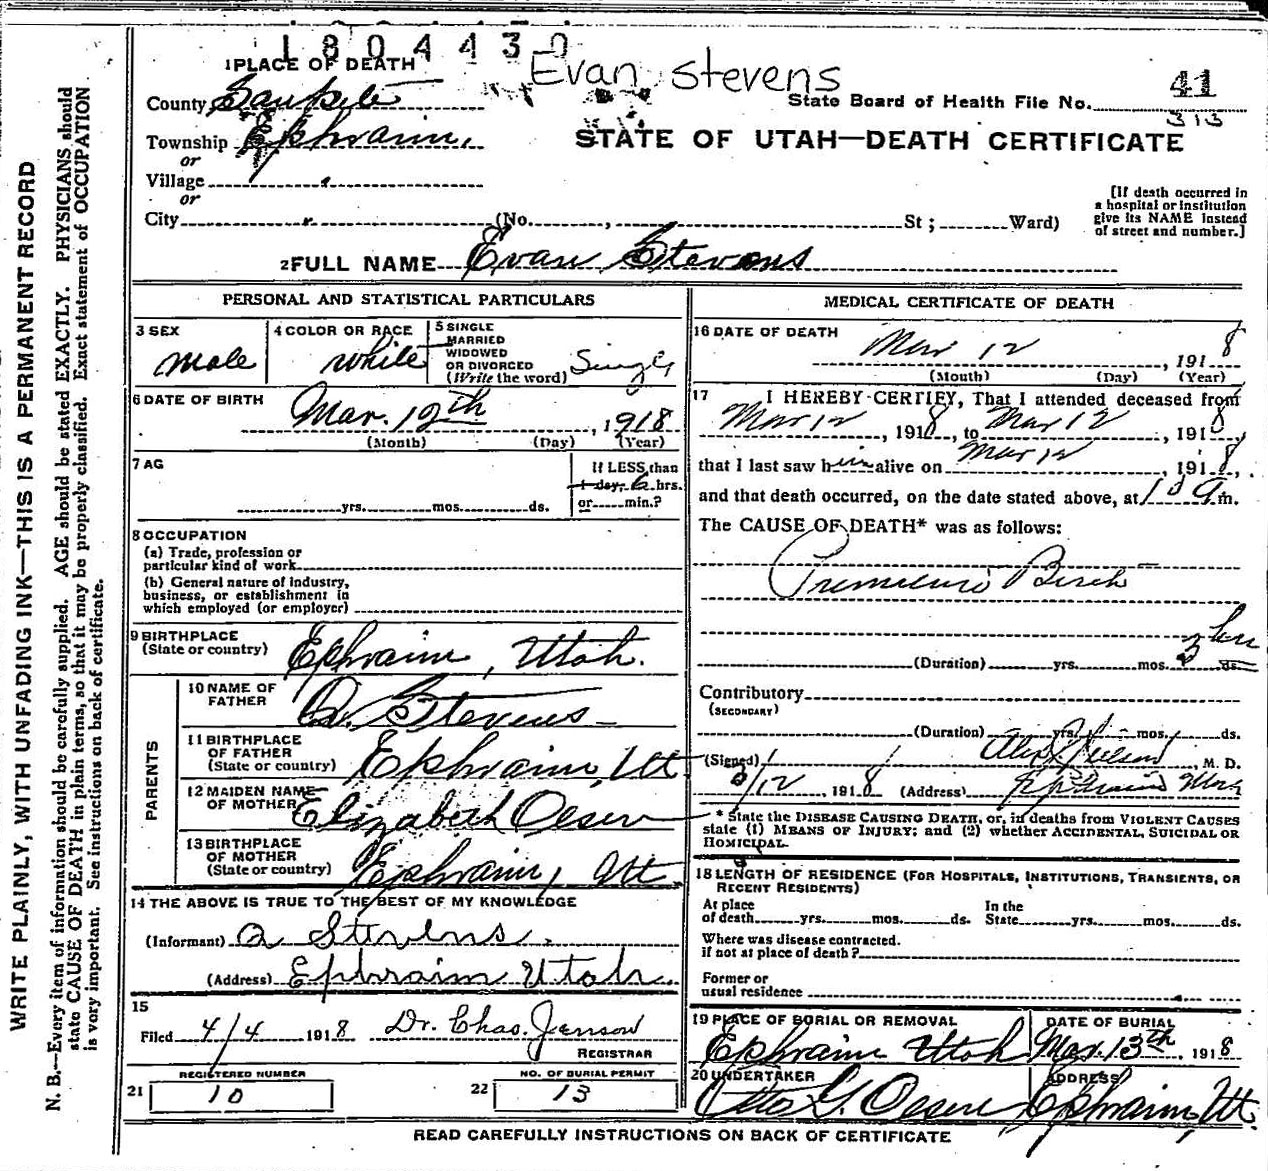 1804430
Evan Stevens
1 PLACE OF DEATH
41
County Sanpete
State Board of Health File No.
313
Township Ephraim,
STATE OF UTAH—DEATH CERTIFICATE
or
Village
or
City (No. , St ; Ward)
[If death occurred in
a hospital or institution
give its NAME instead
of street and number.]
2 FULL NAME Evan Stevens
PERSONAL AND STATISTICAL PARTICULARS
3 SEX
Male
4 COLOR OR RACE
White
5 SINGLE
MARRIED
WIDOWED
OR DIVORCED
(Write the word) Single
6 DATE OF BIRTH Mar. 12th , 1918
(Month) (Day) (Year)
7 AG
yrs. mos. ds.
If LESS than
1 day, 6 hrs.
or min.?
8 OCCUPATION
(a) Trade, profession or
particular kind of work
(b) General nature of industry,
business, or establishment in
which employed (or employer)
9 BIRTHPLACE
(State or country) Ephraim, Utah.
PARENTS
10 NAME OF
FATHER A. Stevens
11 BIRTHPLACE
OF FATHER
(State or country) Ephraim, Ut
12 MAIDEN NAME
OF MOTHER Elizabeth Olsen
13 BIRTHPLACE
OF MOTHER
(State or country) Ephraim, Ut
14 THE ABOVE IS TRUE TO THE BEST OF MY KNOWLEDGE
(Informant) A Stevens.
(Address) Ephraim Utah.
15
Filed 4/4 1918 Dr. Chas. Jenson
REGISTRAR
REGISTERED NUMBER
21 10
NO. OF BURIAL PERMIT
22 13
MEDICAL CERTIFICATE OF DEATH
16 DATE OF DEATH Mar 12 , 1918
(Month) (Day) (Year)
17 I HEREBY CERTIFY, That I attended deceased from
Mar 12 , 1918, to Mar 12 , 1918,
that I last saw him alive on Mar 12 , 1918,
and that death occurred, on the date stated above, at m.
The CAUSE OF DEATH* was as follows:
Premature Birth
(Duration) yrs. mos. ds.
Contributory
(SECONDARY)
(Duration) yrs. mos. ds.
(Signed) , M. D.
3/12 , 1918 (Address) Ephraim Utah
* State the DISEASE CAUSING DEATH, or, in deaths from VIOLENT CAUSES
state (1) MEANS OF INJURY; and (2) whether ACCIDENTAL, SUICIDAL OR
HOMICIDAL.
18 LENGTH OF RESIDENCE (FOR HOSPITALS, INSTITUTIONS, TRANSIENTS, OR
RECENT RESIDENTS)
At place
of death yrs. mos. ds.
In the
State yrs. mos. ds.
Where was disease contracted.
if not at place of death?
Former or
usual residence
19 PLACE OF BURIAL OR REMOVAL
Ephraim Utah
DATE OF BURIAL
Mar. 13th , 1918
20 UNDERTAKER
Otto G. Olsen
ADDRESS
Ephraim, Ut.
READ CAREFULLY INSTRUCTIONS ON BACK OF CERTIFICATE
WRITE PLAINLY, WITH UNFADING INK—THIS IS A PERMANENT RECORD
N. B.—Every item of information should be carefully supplied. AGE should be stated EXACTLY. PHYSICIANS should
state CAUSE OF DEATH in plain terms, so that it may be properly classified. Exact statement of OCCUPATION
is very important. See instructions on back of certificate.